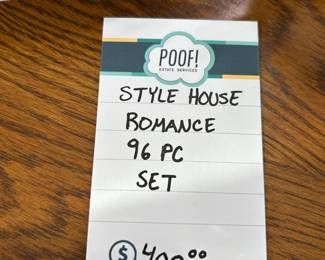 POOF!
ESTATE SERVICES
STYLE HOUSE
ROMANCE
96 PC
SET
$ 400⁰⁰